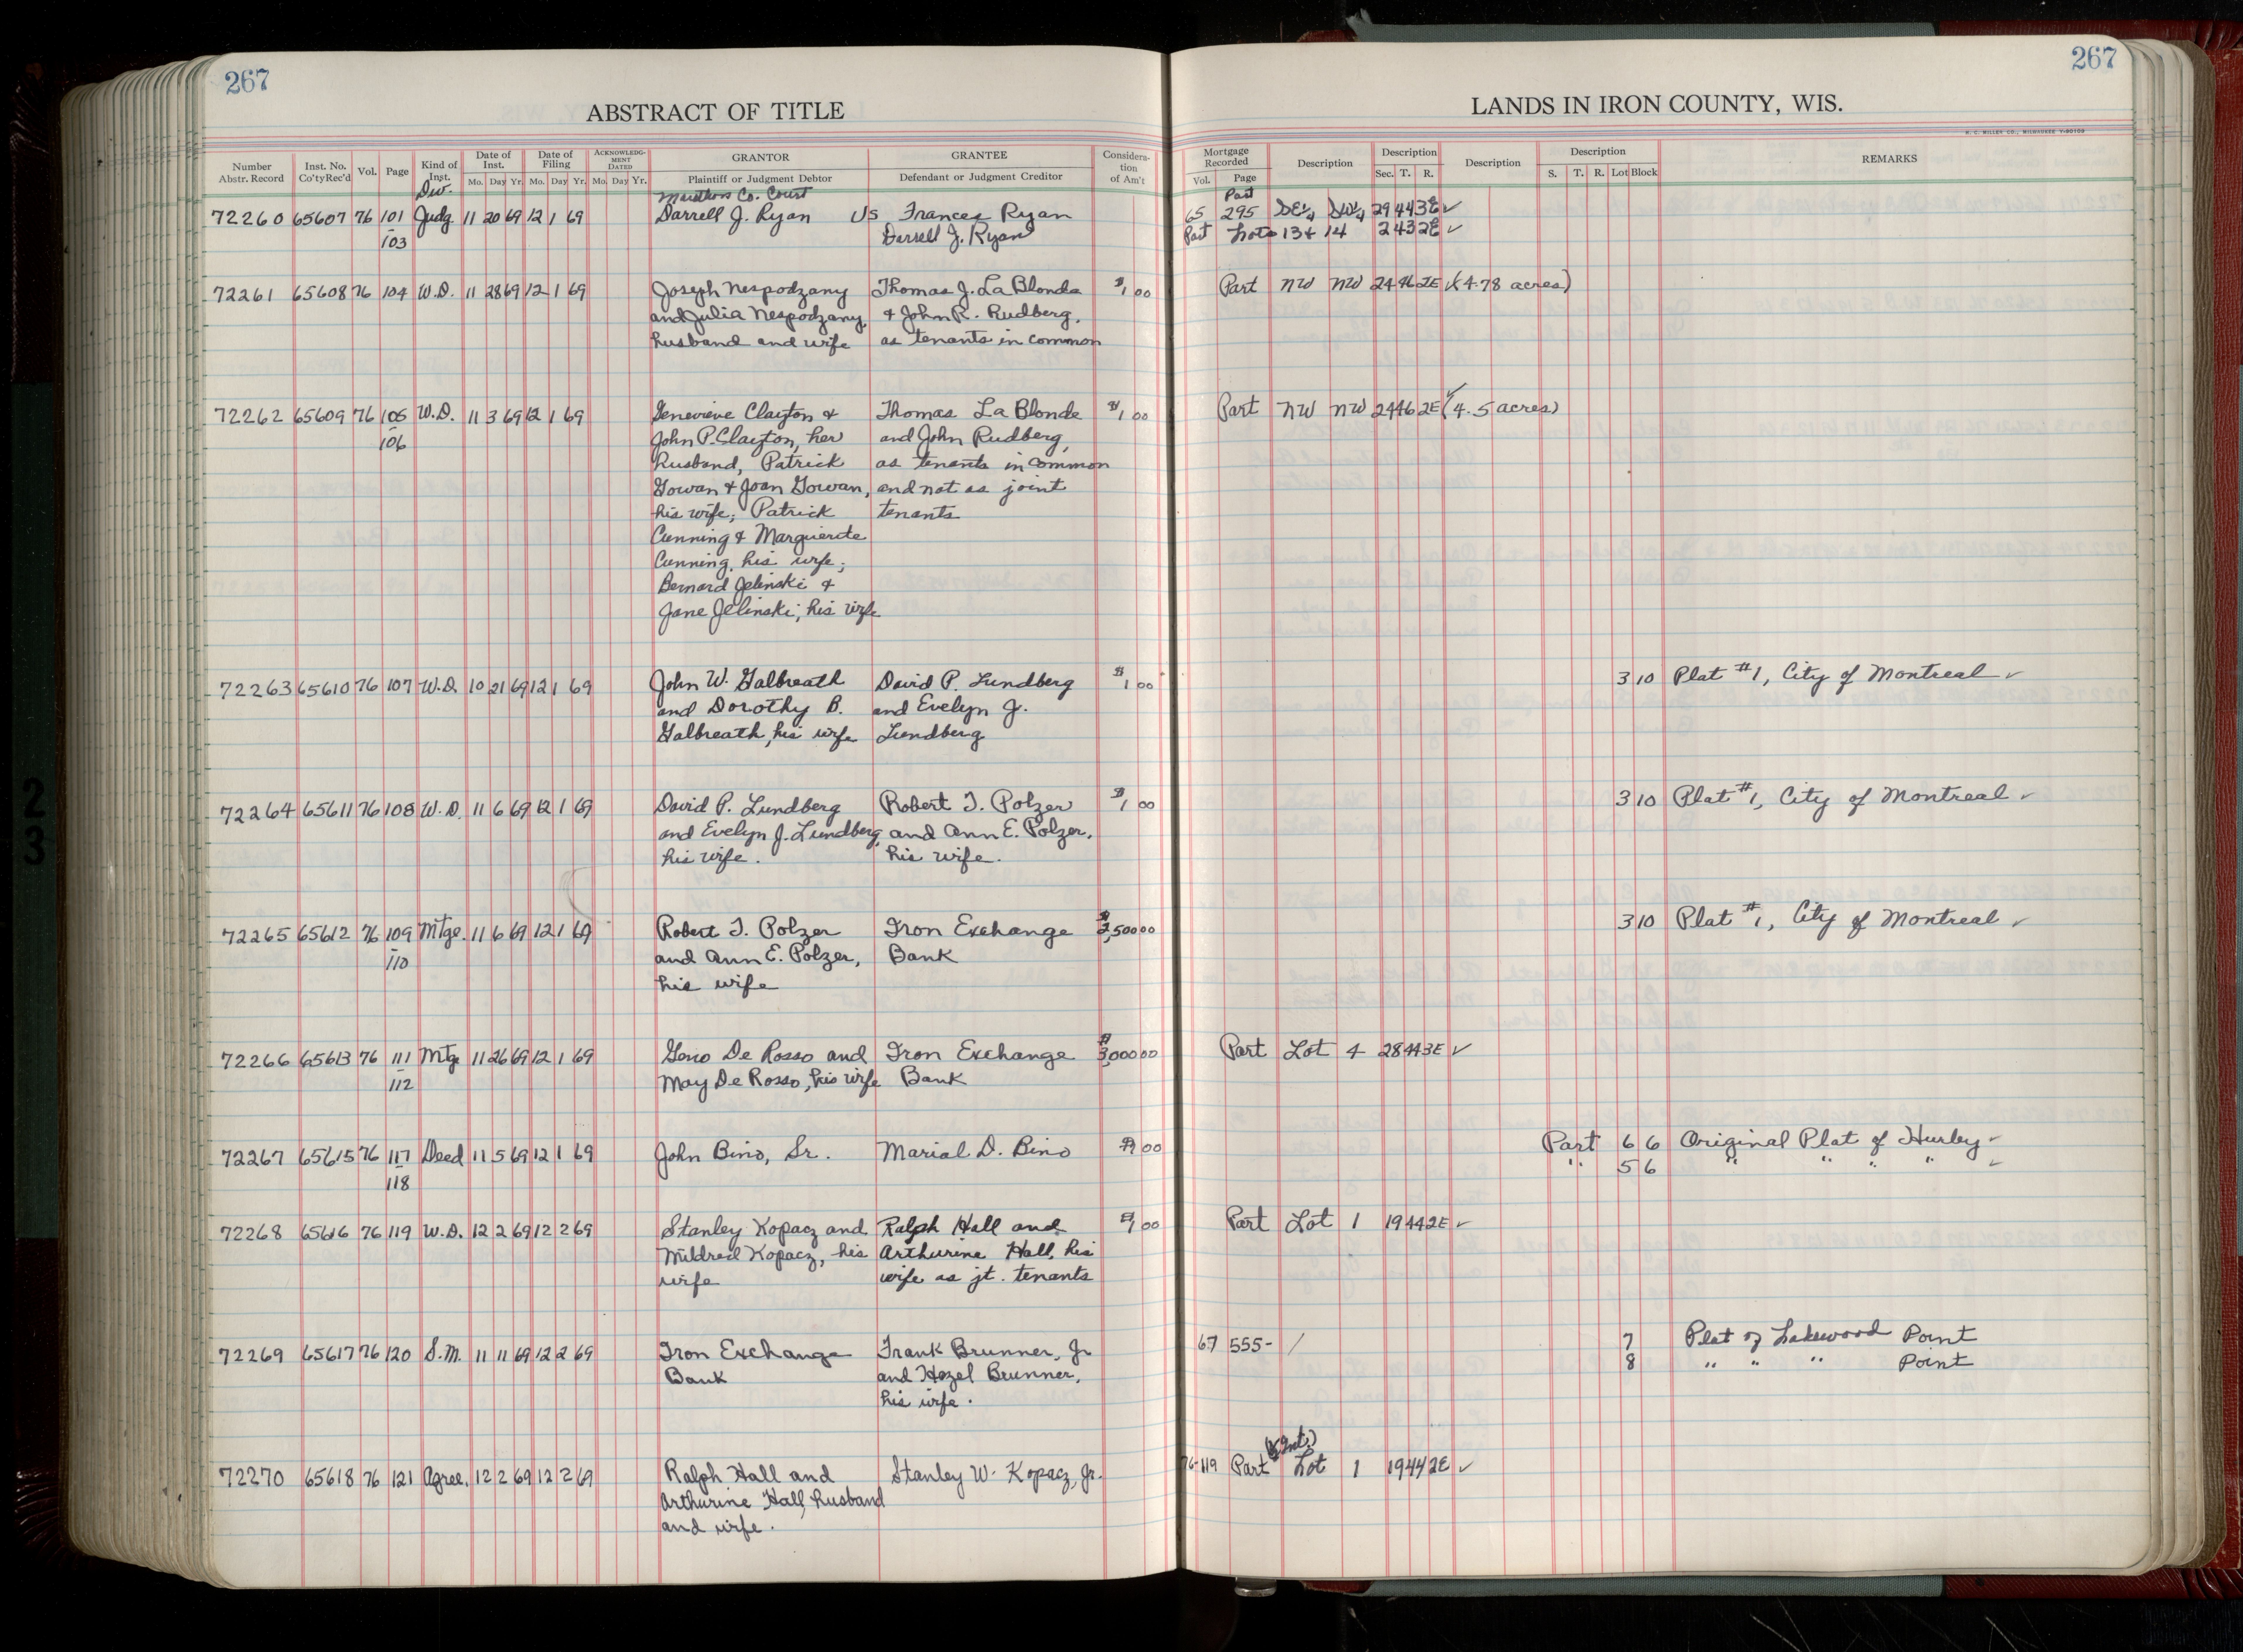 267
ABSTRACT OF TITLE
Number Abstr. Record | Inst. No. Co'ty Rec'd | Vol. | Page | Kind of Inst. | Date of Inst. Mo. Day Yr. | Date of Filing Mo. Day Yr. | ACKNOWLEDGMENT DATED Mo. Day Yr. | GRANTOR Plaintiff or Judgment Debtor | GRANTEE Defendant or Judgment Creditor | Consideration of Am't
267
LANDS IN IRON COUNTY, WIS.
H. C. MILLER CO., MILWAUKEE
Mortgage Recorded Vol. Page | Description | Description Sec. T. R. | Description | Description S. T. R. Lot Block | REMARKS
Div. Marathon Co. Court Part
72260 65607 76 101 Judg. 11 20 69 12 1 69 Darrell J. Ryan Vs Frances Ryan 65 295 SE¼ SW¼ 29 44 3E ✓
103 Darrell J. Ryan Part Lots 13 & 14 2 43 2E ✓
72261 65608 76 104 W.D. 11 28 69 12 1 69 Joseph Nespodzany Thomas J. La Blonde $1 00 Part NW NW 24 46 2E ✓ (4.78 acres)
and Julia Nespodzany, & John R. Rudberg,
husband and wife as tenants in common
72262 65609 76 105 W.D. 11 3 69 12 1 69 Genevieve Clayton & Thomas La Blonde $1 00 Part NW NW 24 46 2E ✓ (4.5 acres)
106 John P. Clayton, her and John Rudberg,
husband, Patrick as tenants in common
Gowan & Joan Gowan, and not as joint
his wife; Patrick tenants
Cunning & Marguerite
Cunning, his wife;
Bernard Jelinski &
Jane Jelinski, his wife
72263 65610 76 107 W.D. 10 21 69 12 1 69 John W. Galbreath David P. Lundberg $1 00 3 10 Plat #1, City of Montreal ✓
and Dorothy B. and Evelyn J.
Galbreath, his wife Lundberg
72264 65611 76 108 W.D. 11 6 69 12 1 69 David P. Lundberg Robert T. Polzer $1 00 3 10 Plat #1, City of Montreal ✓
and Evelyn J. Lundberg, and Ann E. Polzer,
his wife. his wife.
72265 65612 76 109 Mtge. 11 6 69 12 1 69 Robert T. Polzer Iron Exchange $2,500 00 3 10 Plat #1, City of Montreal ✓
110 and Ann E. Polzer, Bank
his wife
72266 65613 76 111 Mtge 11 26 69 12 1 69 Geno De Rosso and Iron Exchange $3,000 00 Part Lot 4 28 44 3E ✓
112 May De Rosso, his wife Bank
72267 65615 76 117 Deed 11 5 69 12 1 69 John Bino, Sr. Marial D. Bino $1 00 Part 6 6 Original Plat of Hurley ✓
118 " 5 6 " " " " ✓
72268 65616 76 119 W.D. 12 2 69 12 2 69 Stanley Kopacz and Ralph Hall and $1 00 Part Lot 1 19 44 2E ✓
Mildred Kopacz, his Arthurine Hall, his
wife wife as jt. tenants
72269 65617 76 120 S.M. 11 11 69 12 2 69 Iron Exchange Frank Brunner, Jr 67 555- / 7 Plat of Lakewood Point
Bank and Hazel Brunner, 8 " " " Point
his wife.
72270 65618 76 121 Agree. 12 2 69 12 2 69 Ralph Hall and Stanley W. Kopacz, Jr. 76-119 Part Lot 1 19 44 2E ✓
Arthurine Hall, husband
and wife.